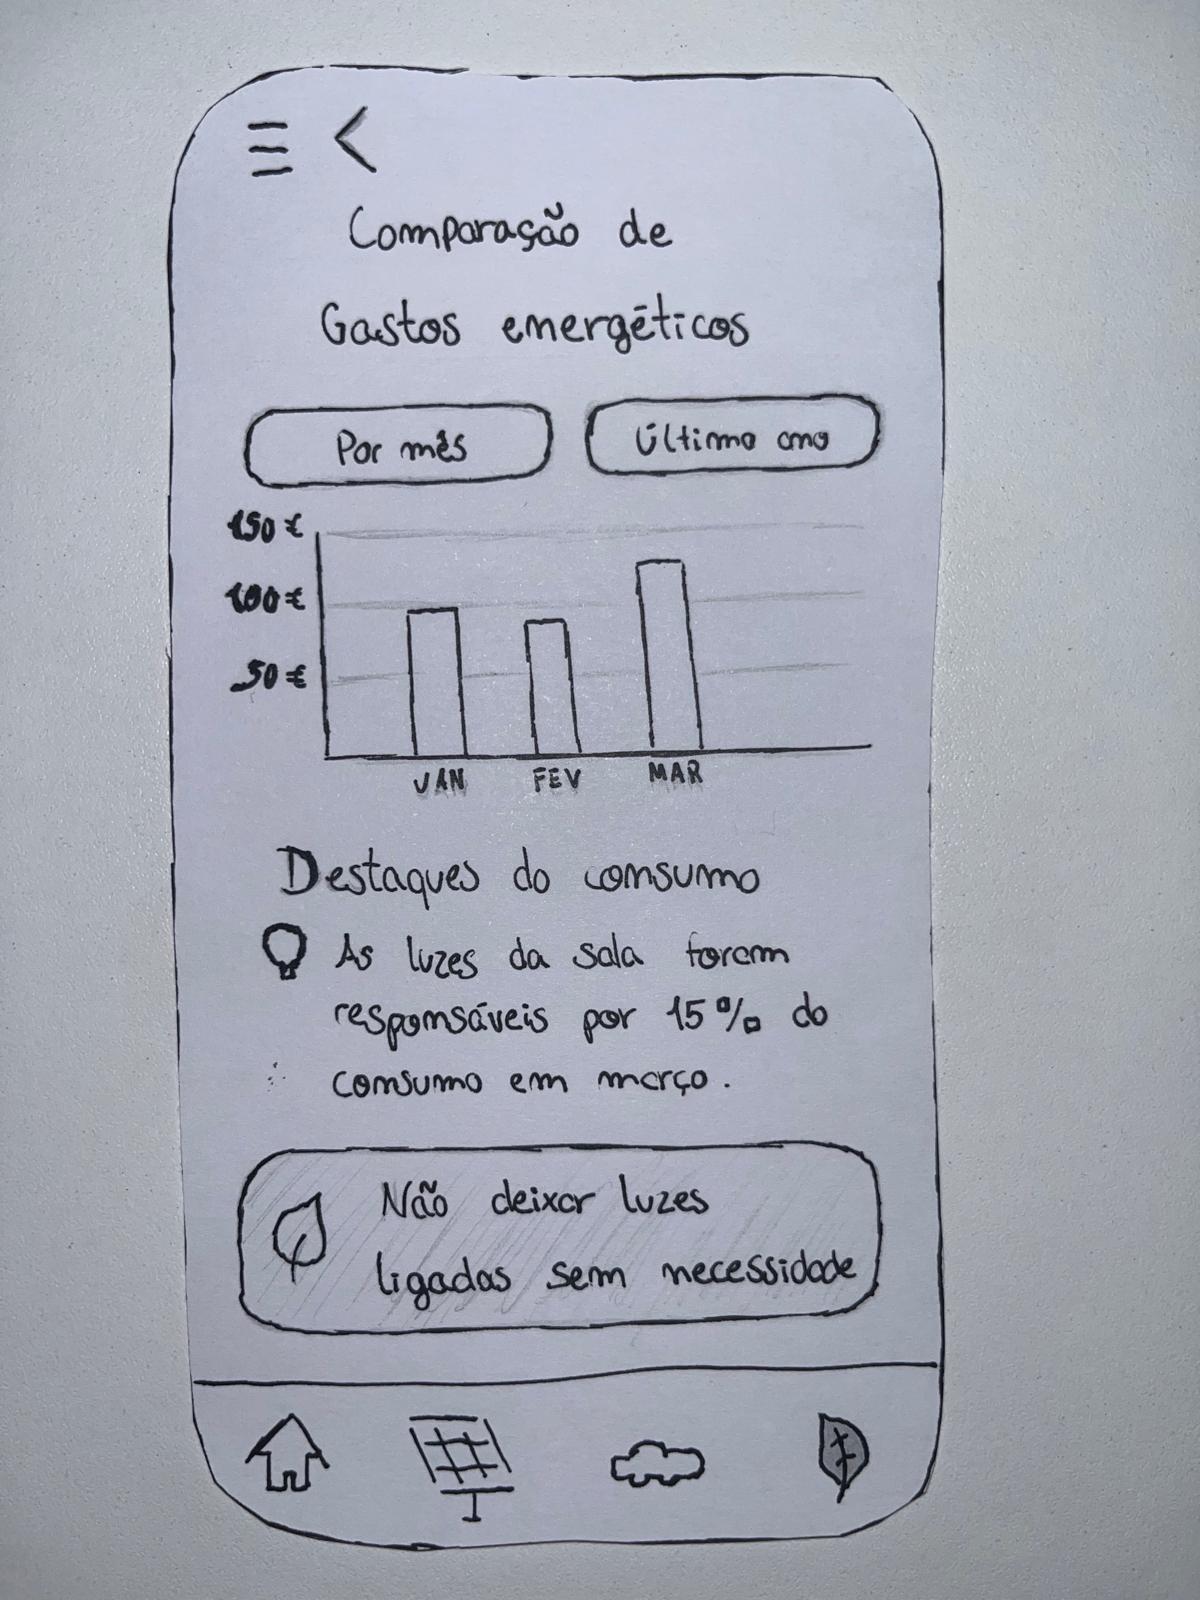 Comparação de
Gastos energéticos
Por mês
Último ano
150 €
100 €
50 €
JAN
FEV
MAR
Destaques do consumo
As luzes da sala foram
responsáveis por 15% do
consumo em março.
Não deixar luzes
ligadas sem necessidade